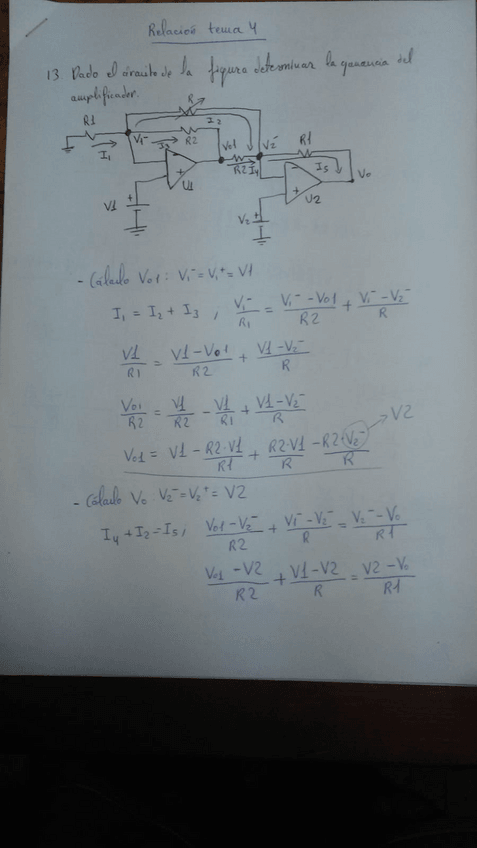 Relación tema 4
13. Dado el circuito de la figura determinar la ganancia del
amplificador.
R
R1 V1⁻ I2
I1 I3 R2 V01 R2 I4 V2⁻ R1 I5 V0
V1 + - + U1
V2 + - + U2
- Cálculo V01: V1⁻ = V1⁺ = V1
I1 = I2 + I3 , V1⁻/R1 = (V1⁻ - V01)/R2 + (V1⁻ - V2⁻)/R
V1/R1 = (V1 - V01)/R2 + (V1 - V2⁻)/R
V01/R2 = V1/R2 - V1/R1 + (V1 - V2⁻)/R
V01 = V1 - R2·V1/R1 + R2·V1/R - R2·V2⁻/R → V2
- Cálculo V0 V2⁻ = V2⁺ = V2
I4 + I2 = I5, (V01 - V2⁻)/R2 + (V1⁻ - V2⁻)/R = (V2⁻ - V0)/R1
(V01 - V2)/R2 + (V1 - V2)/R = (V2 - V0)/R1